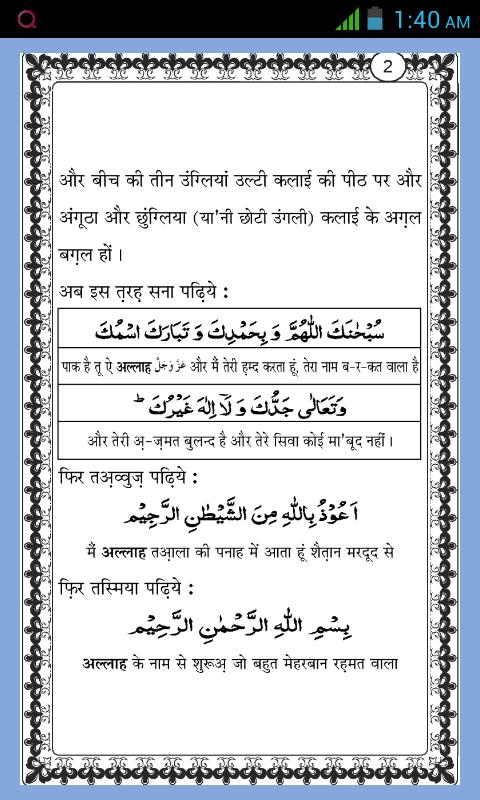 1:40 AM
2
और बीच की तीन उंग्लियां उल्टी कलाई की पीठ पर और
अंगूठा और छुंग्लिया (या'नी छोटी उंगली) कलाई के अग़ल
बग़ल हों ।
अब इस त़रह़ सना पढ़िये :
سُبْحٰنَكَ اللّٰهُمَّ وَ بِحَمْدِكَ وَ تَبَارَكَ اسْمُكَ
पाक है तू ऐ अल्लाह عَزَّوَجَلَّ और मैं तेरी ह़म्द करता हूं, तेरा नाम ब-र-कत वाला है
وَتَعَالٰى جَدُّكَ وَ لَآ اِلٰهَ غَيْرُكَ ؕ
और तेरी अ़-ज़मत बुलन्द है और तेरे सिवा कोई मा'बूद नहीं ।
फिर तअ़व्वुज़ पढ़िये :
اَعُوْذُ بِاللّٰهِ مِنَ الشَّيْطٰنِ الرَّجِيْمِ
मैं अल्लाह तआ़ला की पनाह में आता हूं शैत़ान मरदूद से
फि़र तस्मिया पढ़िये :
بِسْمِ اللّٰهِ الرَّحْمٰنِ الرَّحِيْمِ
अल्लाह के नाम से शुरूअ़ जो बहुत मेहरबान रह़मत वाला